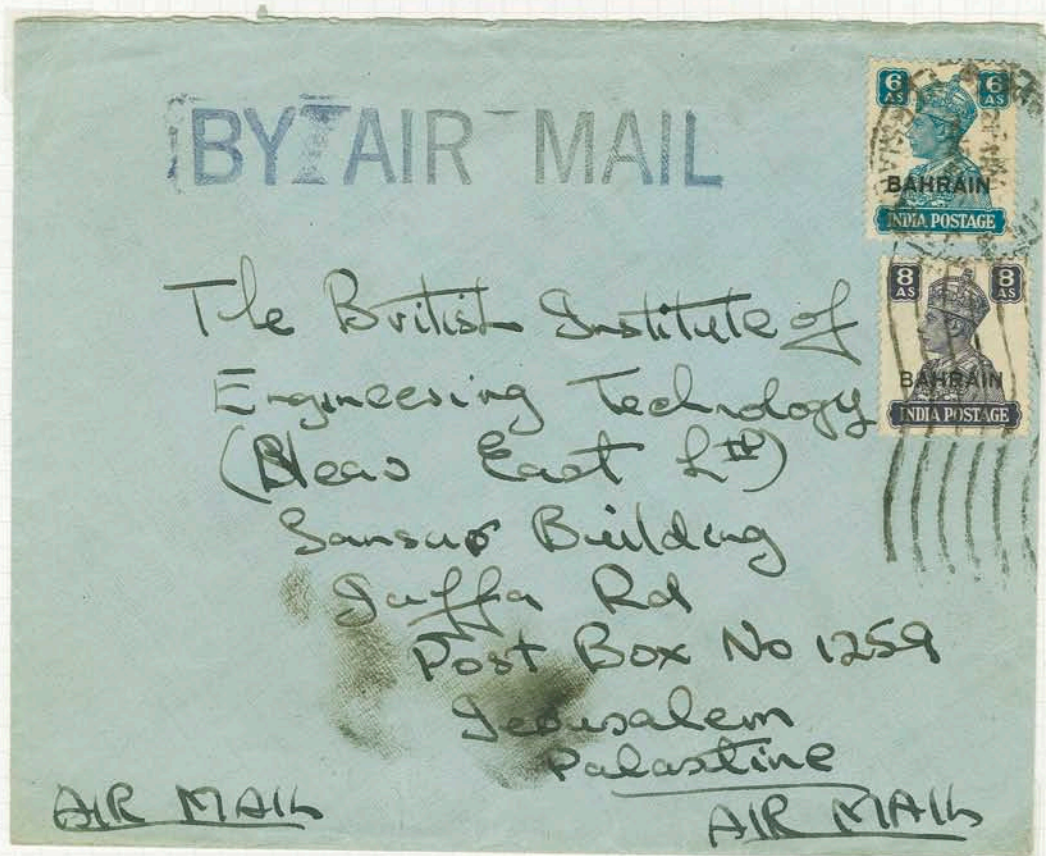 BY AIR MAIL
6 AS 6 AS
BAHRAIN
INDIA POSTAGE
8 AS 8 AS
BAHRAIN
INDIA POSTAGE
The British Institute of
Engineering Technology
(Near East Ltd)
Sansur Building
Jaffa Rd
Post Box No 1259
Jerusalem
Palastine
AIR MAIL
AIR MAIL